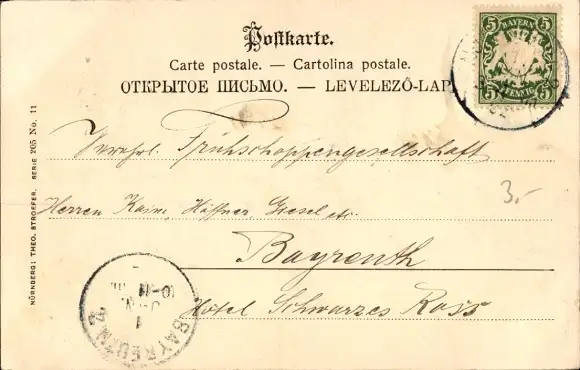 Postkarte.
Carte postale. — Cartolina postale.
ОТКРЫТОЕ ПИСЬМО. — LEVELEZŐ-LAP.
5 BAYERN 5
5 PFENNIG 5
Verehrl. Frühschoppengesellschaft
Herren Kaim, Häffner, Giesel etc.
Bayreuth
Hotel Schwarzes Ross
3.-
NÜRNBERG: THEO. STROEFER. SERIE 205 No. 11
BAYREUTH 2
1
10-11